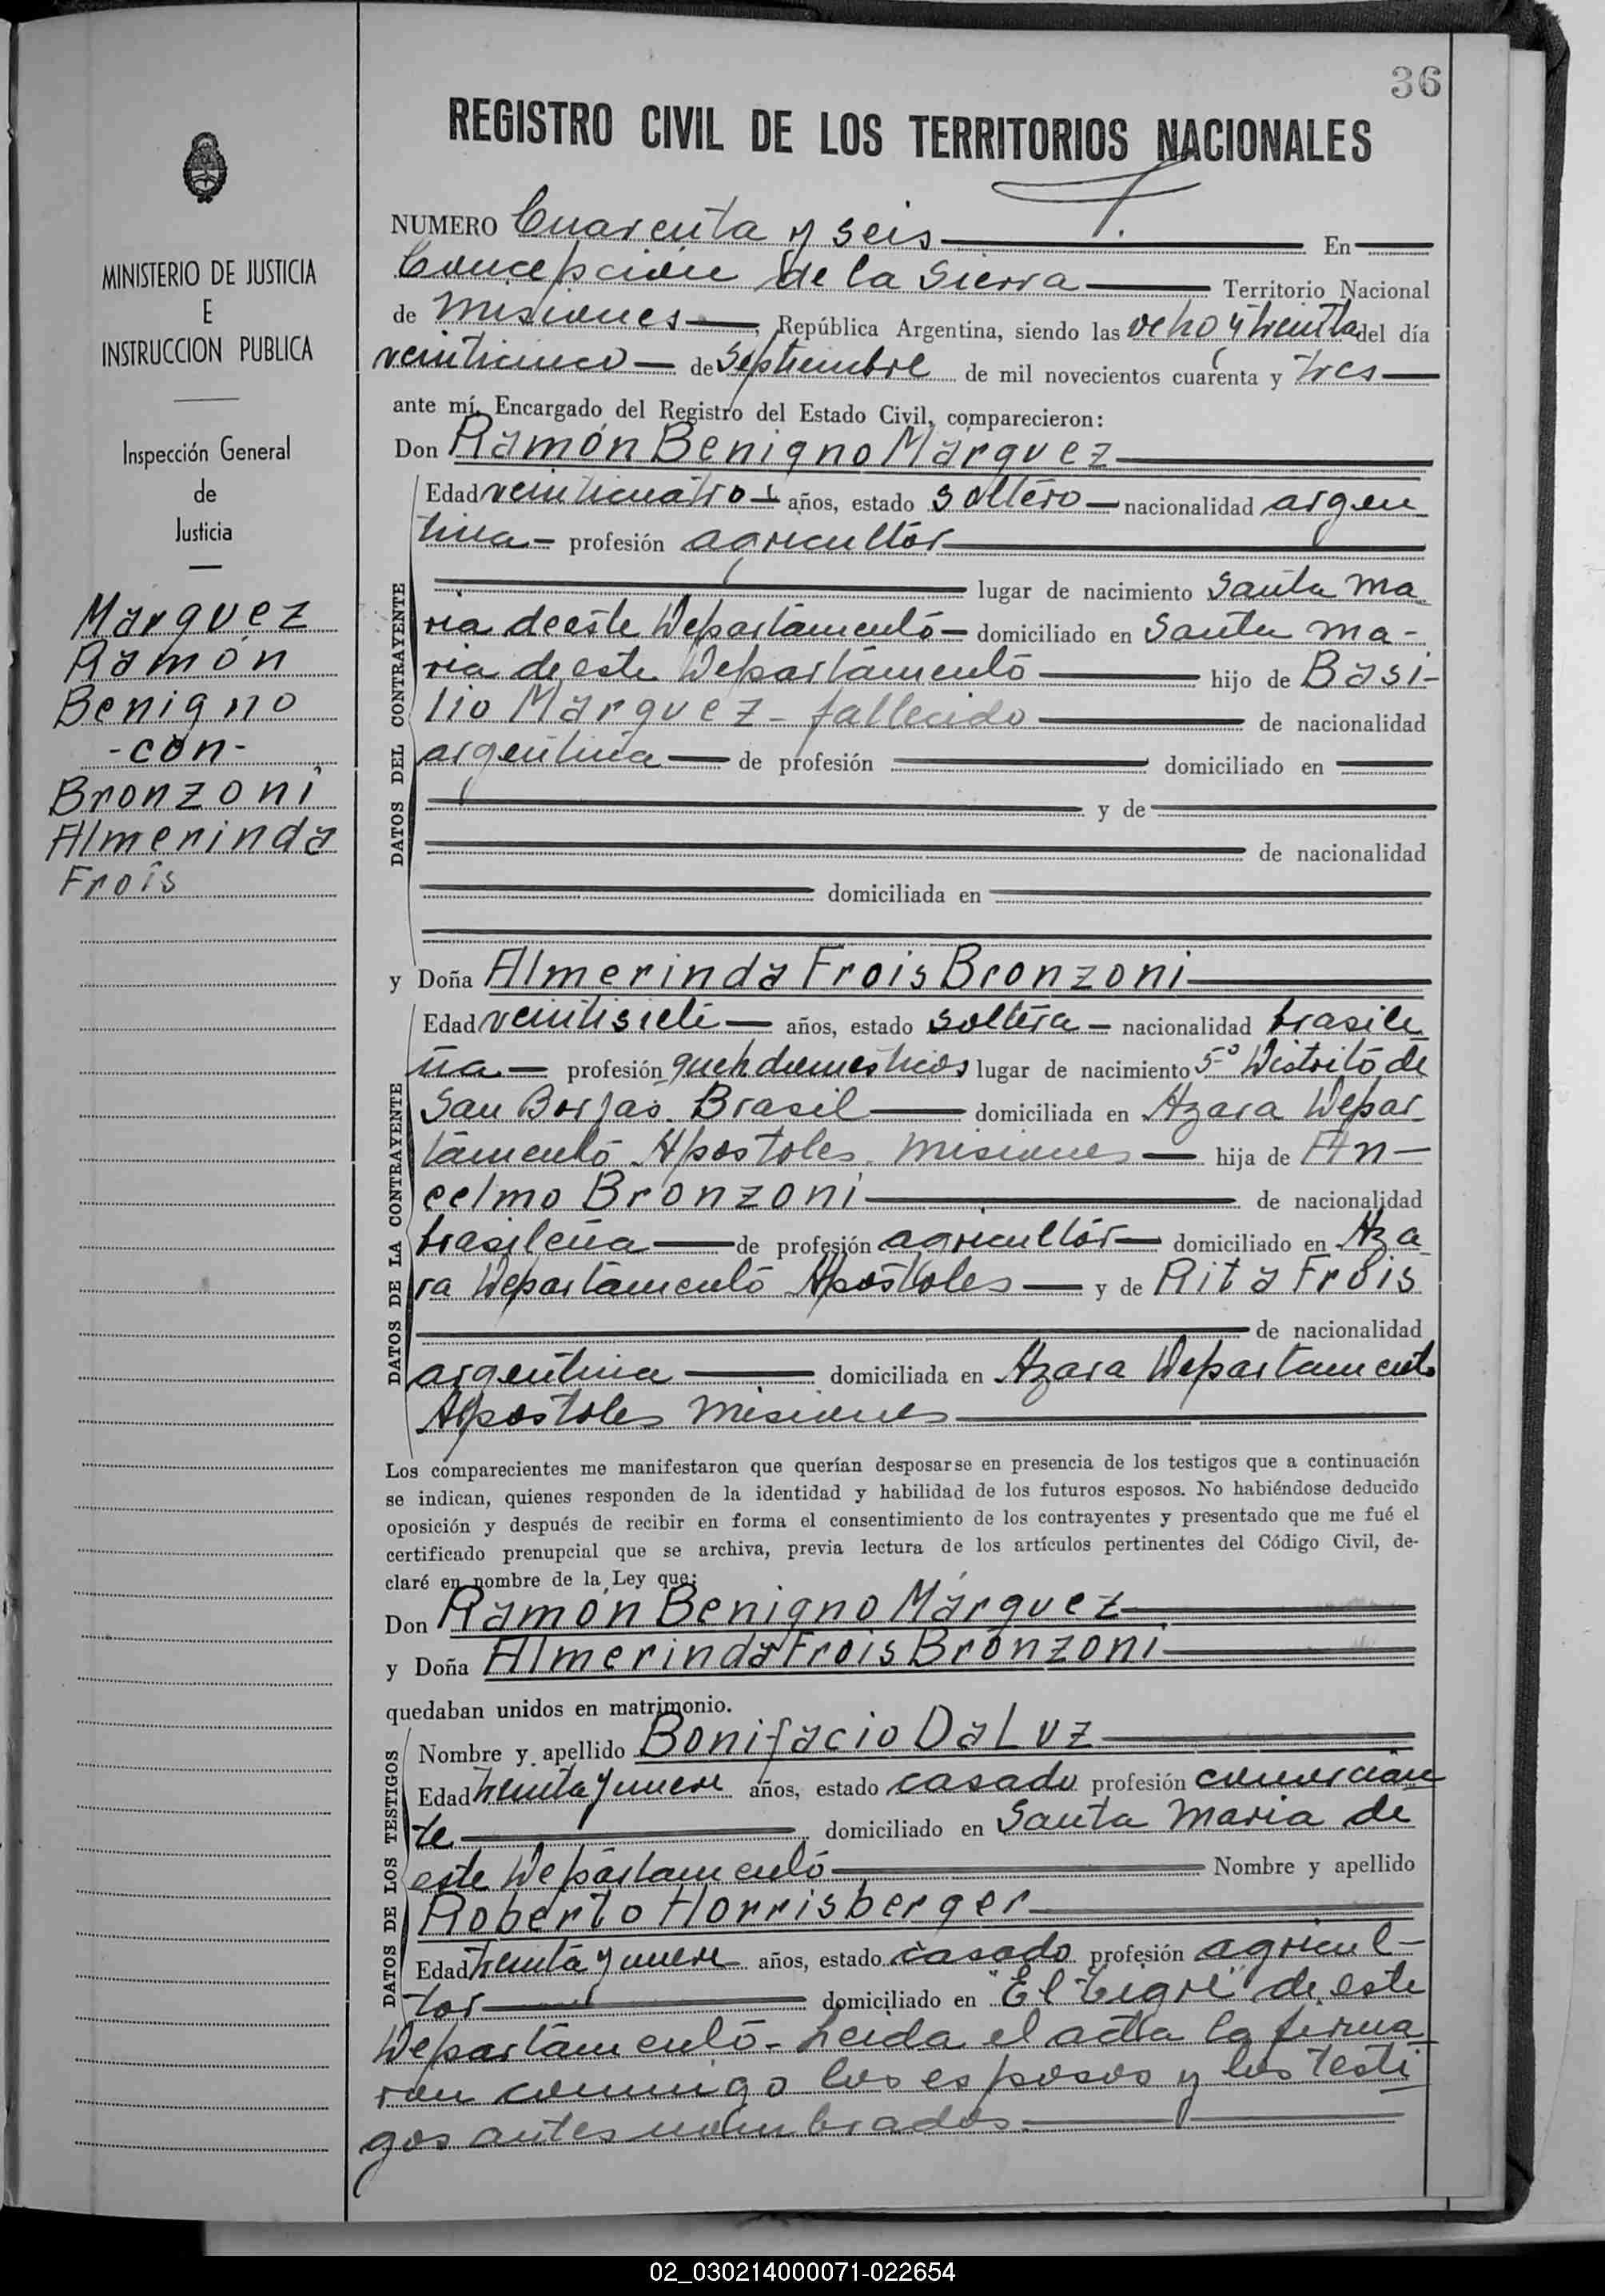 36
REGISTRO CIVIL DE LOS TERRITORIOS NACIONALES
MINISTERIO DE JUSTICIA
E
INSTRUCCION PUBLICA
Inspección General
de
Justicia
Marquez
Ramón
Benigno
-con-
Bronzoni
Almerinda
Frois
NUMERO Cuarenta y seis En
Concepción de la Sierra Territorio Nacional
de Misiones, República Argentina, siendo las ocho y treinta del día
veinticinco de Septiembre de mil novecientos cuarenta y tres
ante mí, Encargado del Registro del Estado Civil, comparecieron:
Don Ramón Benigno Márquez
DATOS DEL CONTRAYENTE
Edad veinticuatro años, estado soltero nacionalidad argen
tina profesión agricultor
lugar de nacimiento Santa Ma
ria de este Departamento domiciliado en Santa Ma-
ria de este Departamento hijo de Basi-
lio Marquez - fallecido de nacionalidad
argentina de profesión domiciliado en
y de
de nacionalidad
domiciliada en
y Doña Almerinda Frois Bronzoni
DATOS DE LA CONTRAYENTE
Edad veintisiete años, estado soltera nacionalidad brasile
ña profesión queh domesticos lugar de nacimiento 5º Distrito de
San Borjas Brasil domiciliada en Azara Depar
tamento Apostoles Misiones hija de An-
celmo Bronzoni de nacionalidad
brasileña de profesión agricultor domiciliado en Aza
ra Departamento Apostoles y de Rita Frois
de nacionalidad
argentina domiciliada en Azara Departamento
Apostoles Misiones
Los comparecientes me manifestaron que querían desposarse en presencia de los testigos que a continuación
se indican, quienes responden de la identidad y habilidad de los futuros esposos. No habiéndose deducido
oposición y después de recibir en forma el consentimiento de los contrayentes y presentado que me fué el
certificado prenupcial que se archiva, previa lectura de los artículos pertinentes del Código Civil, de-
claré en nombre de la Ley que:
Don Ramón Benigno Márquez
y Doña Almerinda Frois Bronzoni
quedaban unidos en matrimonio.
DATOS DE LOS TESTIGOS
Nombre y apellido Bonifacio Da Luz
Edad treinta y nueve años, estado casado profesión comercian
te domiciliado en Santa Maria de
este Departamento Nombre y apellido
Roberto Horrisberger
Edad treinta y nueve años, estado casado profesión agricul-
tor domiciliado en "El Tigre" de este
Departamento - Leida el acta la firma
ron conmigo los esposos y los testi
gos antes nombrados.
02_030214000071-022654